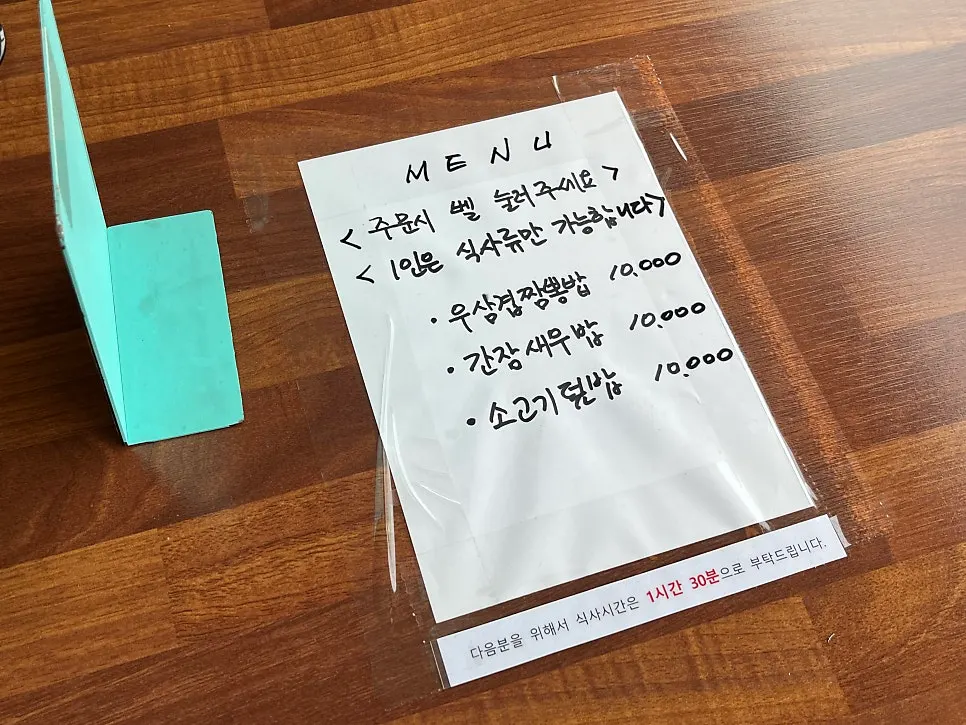 MENU
< 주문시 벨 눌러주세요 >
< 1인은 식사류만 가능합니다>
· 우삼겹짬뽕밥 10,000
· 간장새우밥 10,000
· 소고기덮밥 10,000
다음분을 위해서 식사시간은 1시간 30분으로 부탁드립니다.